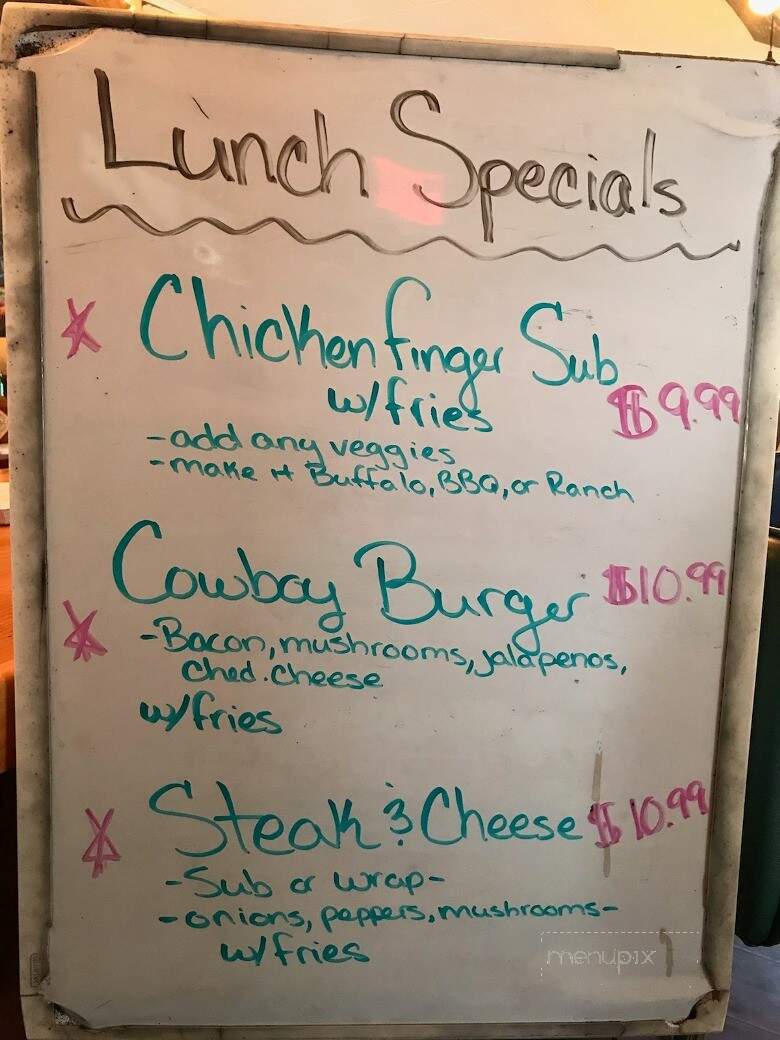 Lunch Specials
Chicken finger Sub
w/fries $9.99
-add any veggies
-make it Buffalo, BBQ, or Ranch
Cowboy Burger $10.99
-Bacon, mushrooms, jalapenos,
ched. cheese
w/fries
Steak & Cheese $10.99
-Sub or wrap-
-onions, peppers, mushrooms-
w/ fries
menupix